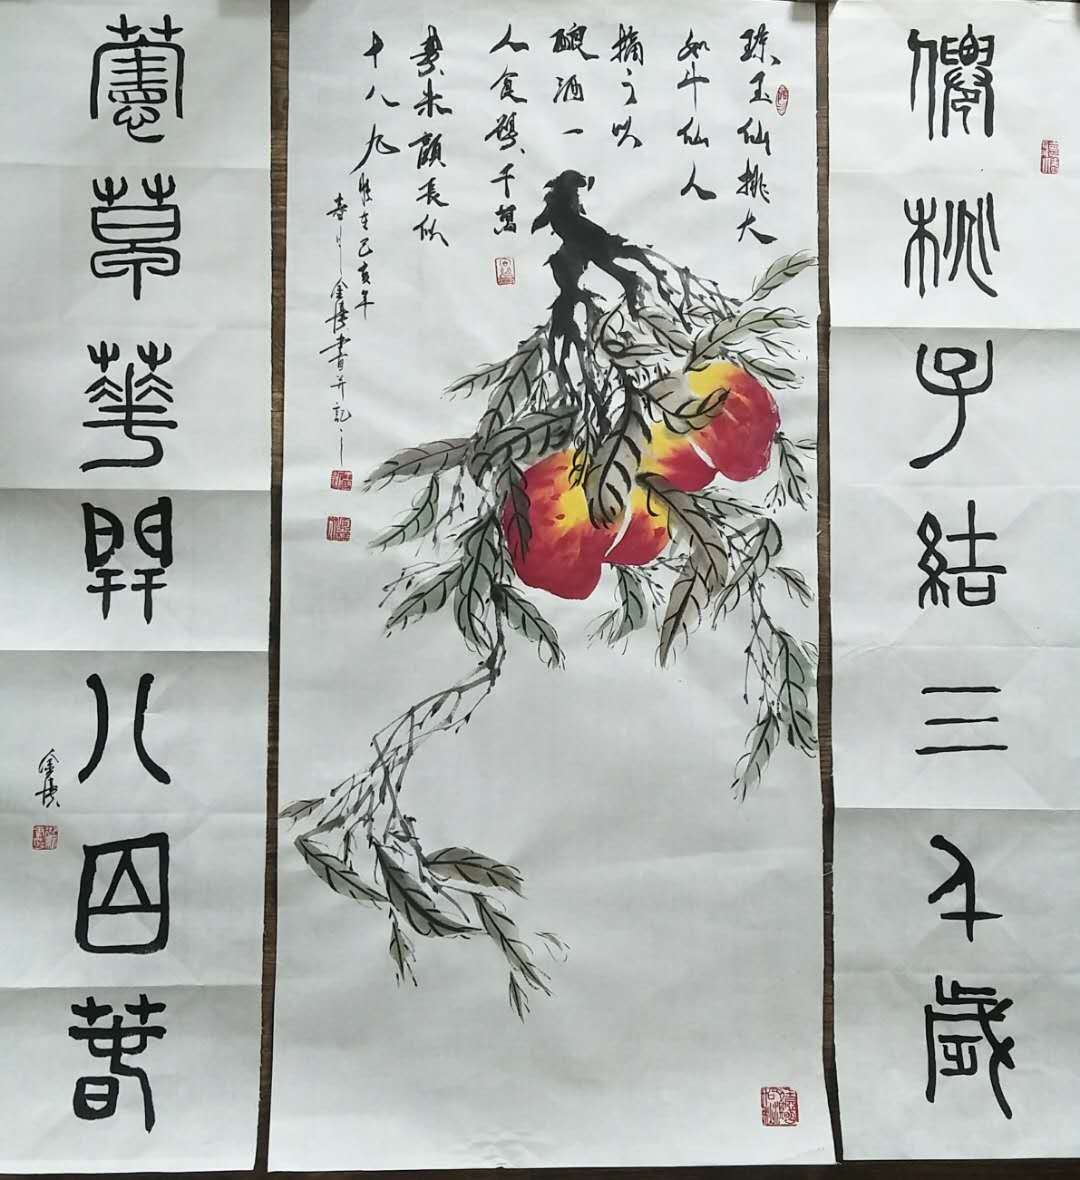 僊桃子結三千歲
珠玉仙桃大
如斗仙人
摘之以
釀酒一
人食千萬
壽朱顏長似
十八九
歲在己亥年
金書并記之
萱草華開八百春
金